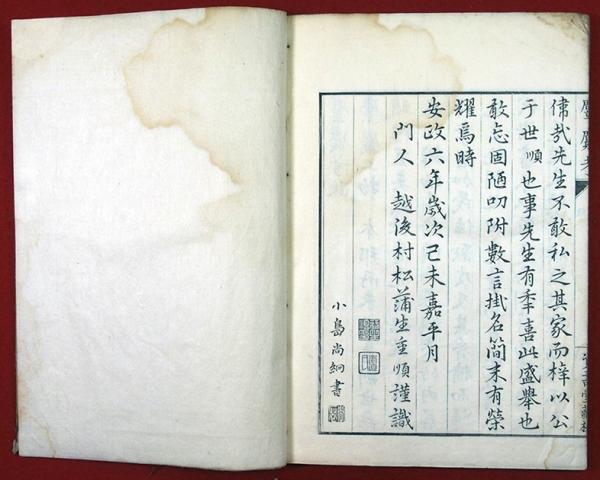 偉哉先生不敢私之其家而梓以公
于世順也事先生有秊喜此盛舉也
敢忘固陋叨附數言掛名簡末有榮
耀焉時
安政六年歲次己未嘉平月
門人 越後村松蒲生重順謹識
小島尚絅書